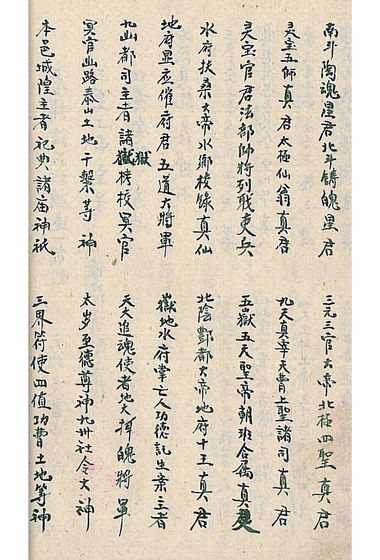 南斗陶魂星君北斗铸魄星君 三元三官大帝北極四聖真君
灵宝五師真君太極仙翁真君 九天真宰天曹上聖諸司真君
灵宝官君法部帥將列职吏兵 五嶽五天聖帝朝班合属真
水府扶桑大帝水鄉梭真仙 北陰酆都大帝地府十王真君
地府显应催府君五道大將軍 嶽地水府掌亡人功德記生案主者
九山都司主者諸獄拷校冥官 天大追魂使者地大掉魄將軍
冥官幽路泰山土地干繫等神 太岁至德尊神九州社令大神
本邑城隍主者祀典諸庙神祇 三界符使四值功曹土地等神